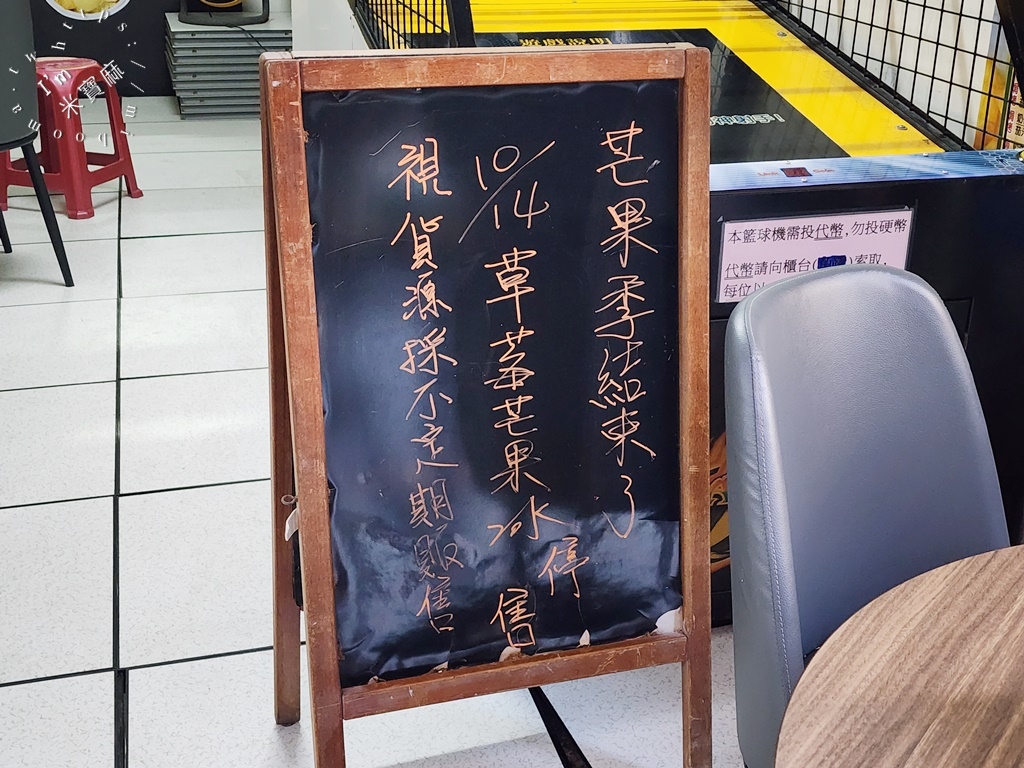 芒果季결束了
10/14草莓芒果冰停售
視貨源採不定期販售
遊戲說明
本籃球機需投代幣,勿投硬幣
代幣請向櫃台(
)索取,
每位以
米寶麻